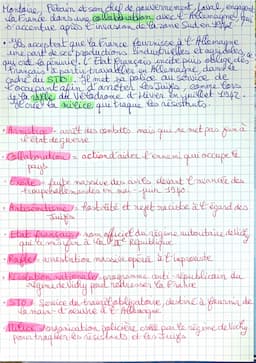 Montoire, Pétain et son chef de gouvernement, Laval, engagent
la France dans une collaboration avec l'Allemagne qui
s'accentue après l'invasion de la zone Sud en 1942
Ils acceptent que la France fournisse à l'Allemagne
une part de ses productions industrielles et agricoles, ce
qui crée la pénurie. L'Etat français incite puis oblige des
Français à partir travailler en Allemagne dans le
cadre du STO. Il met sa police au service de
l'occupant afin d'arrêter les Juifs, comme lors
de la rafle du Vélodrome d'Hiver en juillet 1942.
Il crée la milice qui traque les résistants.
Armistice : arrêt des combats mais qui ne met pas fin à
l'état de guerre
Collaboration = action d'aider l'ennemi qui occupe le
pays
Exode : fuite massive des civils devant l'avancée des
troupes allemandes en mai-juin 1940
Antisémitisme : hostilité et rejet raciste à l'égard des
Juifs
Etat français : nom officiel du régime autoritaire de Vichy
qui le mis fin à la IIIe République
Rafle : arrestation massive opérée à l'improviste
Révolution nationale : programme anti-républicain du
régime de Vichy pour redresser la France
STO : Service de travail obligatoire, destiné à fournir de
la main-d'œuvre à l'Allemagne
Milice : organisation policière créée par le régime de Vichy
pour traquer les résistants et les Juifs